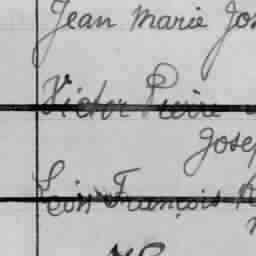 Jean Marie Jos
Victor Pierre
Josep
Léon François